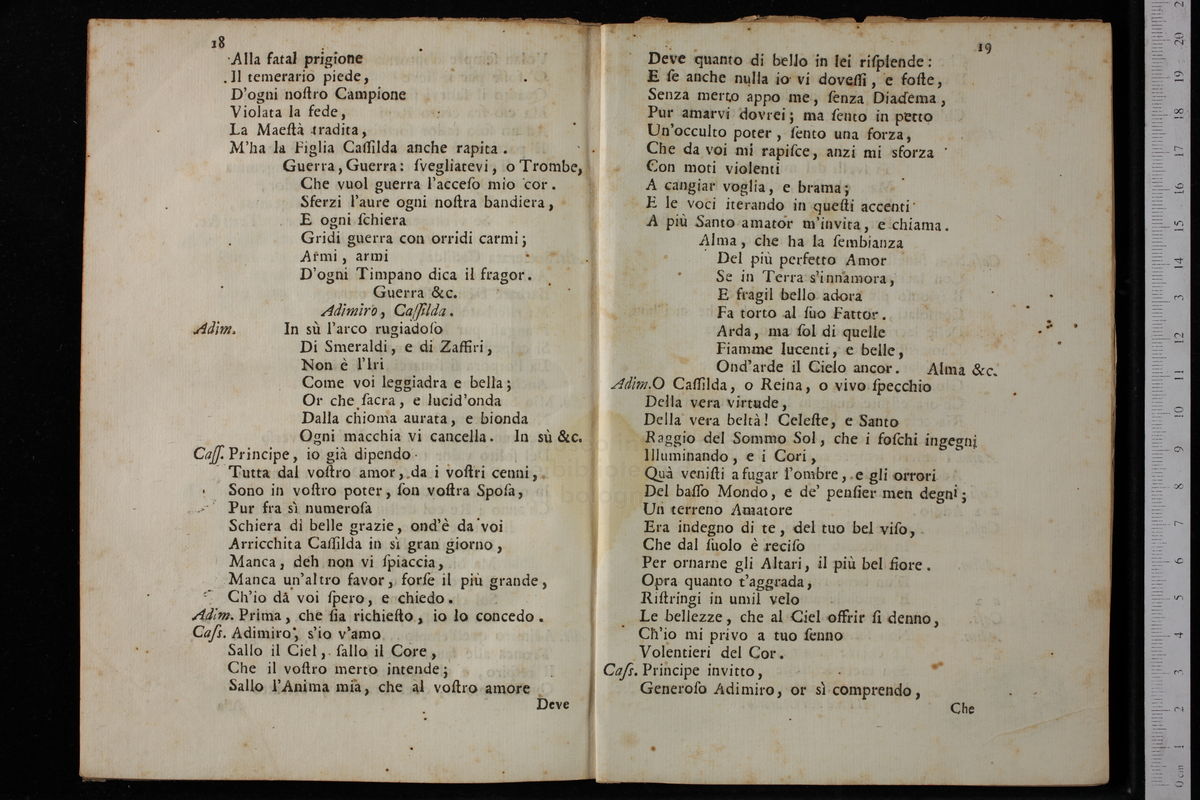 18
Alla fatal prigione
Il temerario piede,
D'ogni noſtro Campione
Violata la fede,
La Maeſtà tradita,
M'ha la Figlia Caſſilda anche rapita.
Guerra, Guerra: ſvegliatevi, o Trombe,
Che vuol guerra l'acceſo mio cor.
Sferzi l'aure ogni noſtra bandiera,
E ogni ſchiera
Gridi guerra con orridi carmi;
Armi, armi
D'ogni Timpano dica il fragor.
Guerra &c.
Adimiro, Caſſilda.
Adim. In sù l'arco rugiadoſo
Di Smeraldi, e di Zaffiri,
Non è l'Iri
Come voi leggiadra e bella;
Or che ſacra, e lucid'onda
Dalla chioma aurata, e bionda
Ogni macchia vi cancella. In sù &c.
Caſſ. Principe, io già dipendo
Tutta dal voſtro amor, da i voſtri cenni,
Sono in voſtro poter, ſon voſtra Spoſa,
Pur fra sì numeroſa
Schiera di belle grazie, ond'è da voi
Arricchita Caſſilda in sì gran giorno,
Manca, deh non vi ſpiaccia,
Manca un'altro favor, forſe il più grande,
Ch'io da voi ſpero, e chiedo.
Adim. Prima, che ſia richieſto, io lo concedo.
Caſs. Adimiro, s'io v'amo
Sallo il Ciel, ſallo il Core,
Che il voſtro merto intende;
Sallo l'Anima mia, che al voſtro amore
Deve
19
Deve quanto di bello in lei riſplende:
E ſe anche nulla io vi doveſſi, e foſte,
Senza merto appo me, ſenza Diadema,
Pur amarvi dovrei; ma ſento in petto
Un'occulto poter, ſento una forza,
Che da voi mi rapiſce, anzi mi sforza
Con moti violenti
A cangiar voglia, e brama;
E le voci iterando in queſti accenti
A più Santo amator m'invita, e chiama.
Alma, che ha la ſembianza
Del più perfetto Amor
Se in Terra s'innamora,
E fragil bello adora
Fa torto al ſuo Fattor.
Arda, ma ſol di quelle
Fiamme lucenti, e belle,
Ond'arde il Cielo ancor. Alma &c.
Adim. O Caſſilda, o Reina, o vivo ſpecchio
Della vera virtude,
Della vera beltà! Celeſte, e Santo
Raggio del Sommo Sol, che i foſchi ingegni
Illuminando, e i Cori,
Quà veniſti a fugar l'ombre, e gli orrori
Del baſſo Mondo, e de' penſier men degni;
Un terreno Amatore
Era indegno di te, del tuo bel viſo,
Che dal ſuolo è reciſo
Per ornarne gli Altari, il più bel fiore.
Opra quanto t'aggrada,
Riſtringi in umil velo
Le bellezze, che al Ciel offrir ſi denno,
Ch'io mi privo a tuo ſenno
Volentieri del Cor.
Caſs. Principe invitto,
Generoſo Adimiro, or sì comprendo,
Che